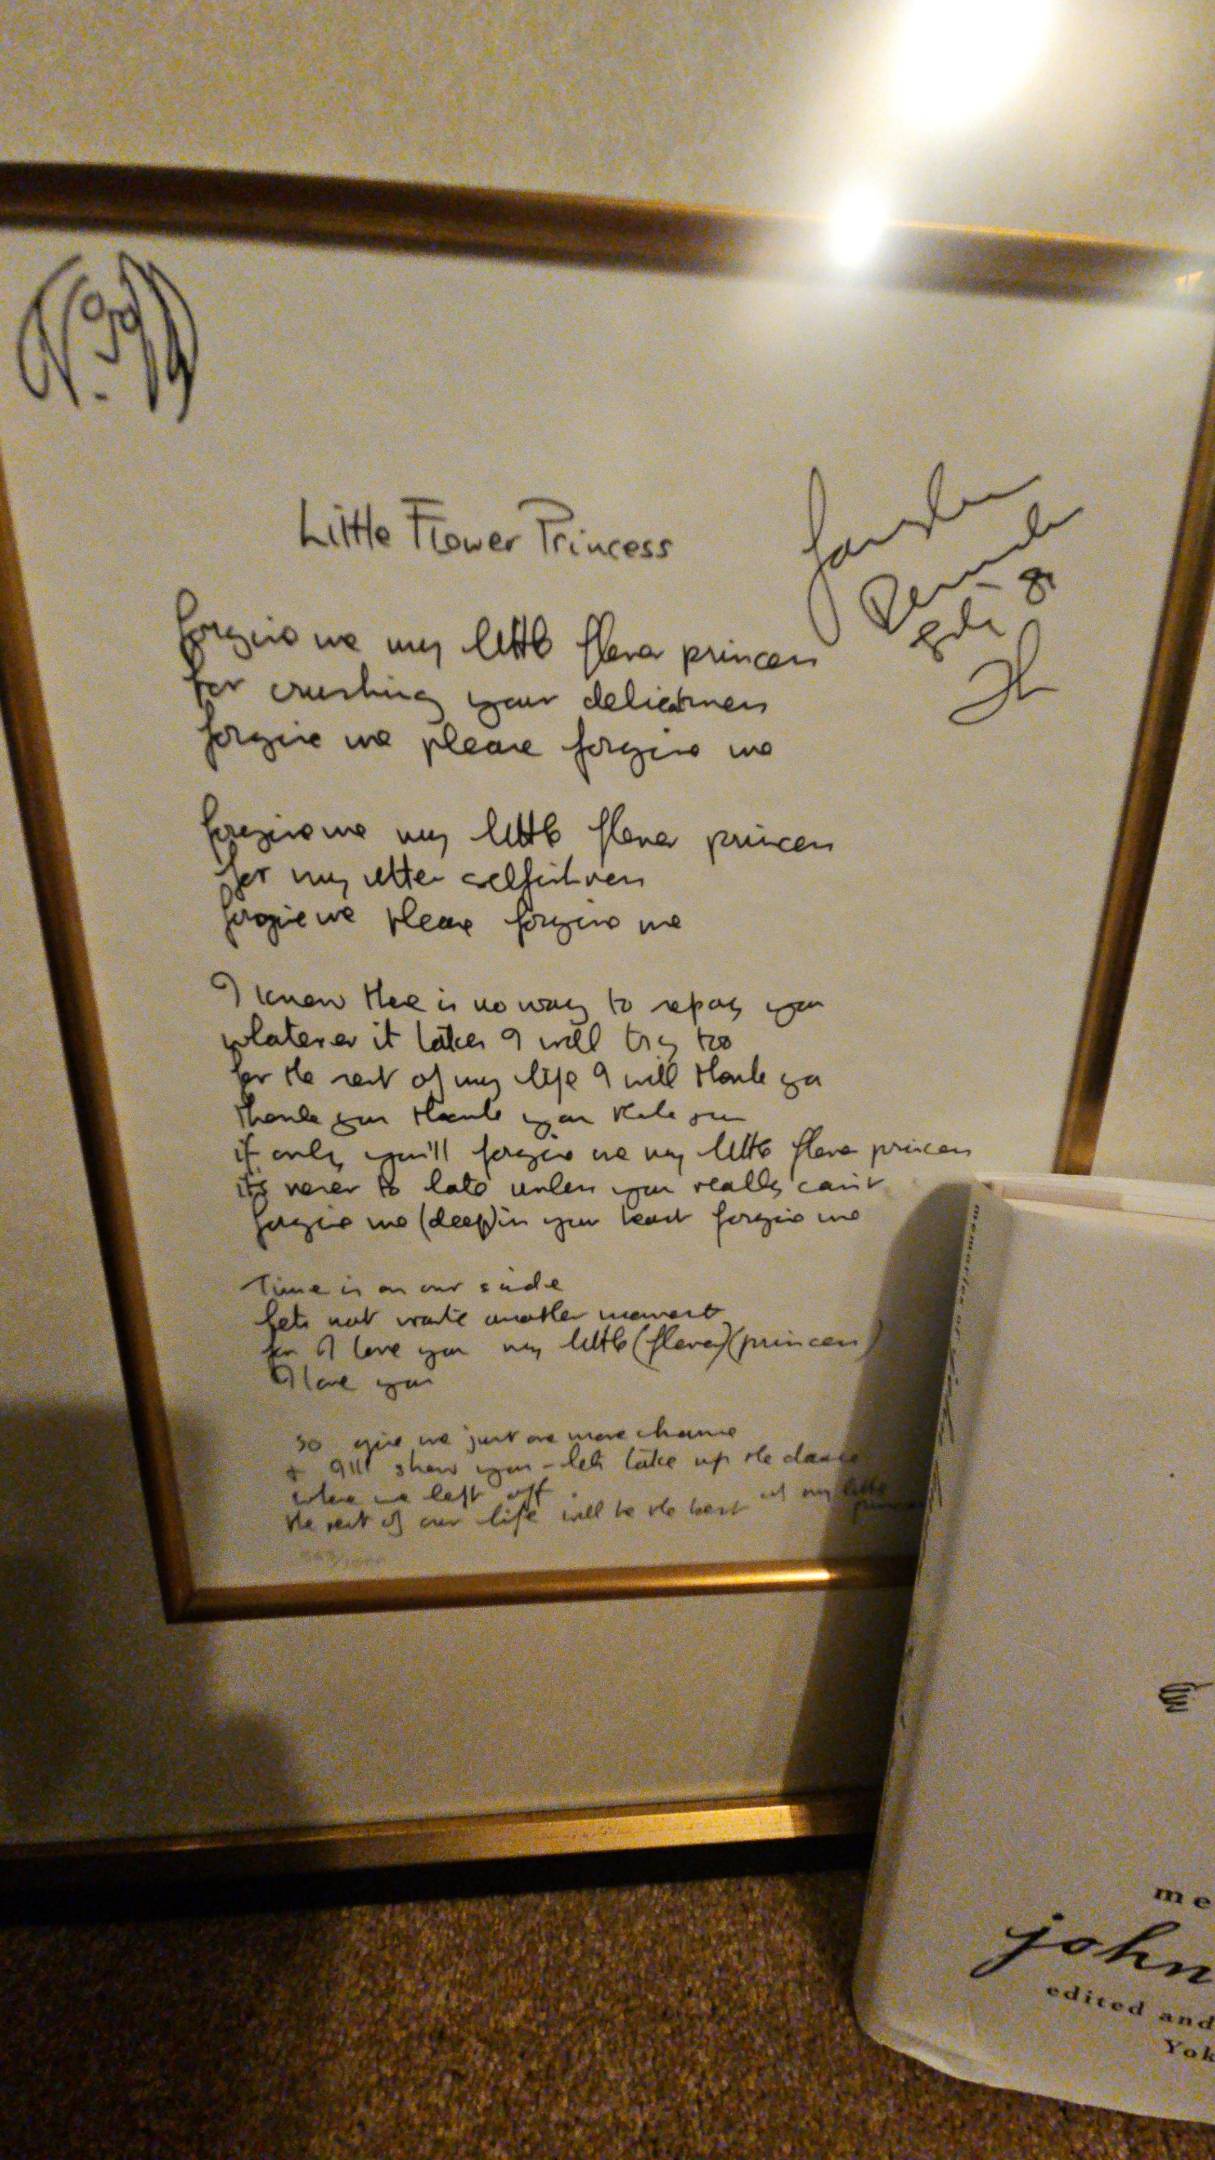 Little Flower Princess
Bermuda
forgive me my little flower princess
for crushing your delicateness
forgive me please forgive me
forgive me my little flower princess
for my utter selfishness
forgive me please forgive me
I know there is no way to repay you
whatever it takes I will try too
for the rest of my life I will thank you
thank you thank you thank you
if only you'll forgive me my little flower princess
its never to late unless you really can't
forgive me (deep) in your heart forgive me
Time is on our side
lets not waste another moment
for I love you my little (flower) (princess)
I love you
so give me just one more chance
+ I'll show you - lets take up the dance
where we left off
the rest of our life will be the best my little
memories of john
me
john
edited and
Yok